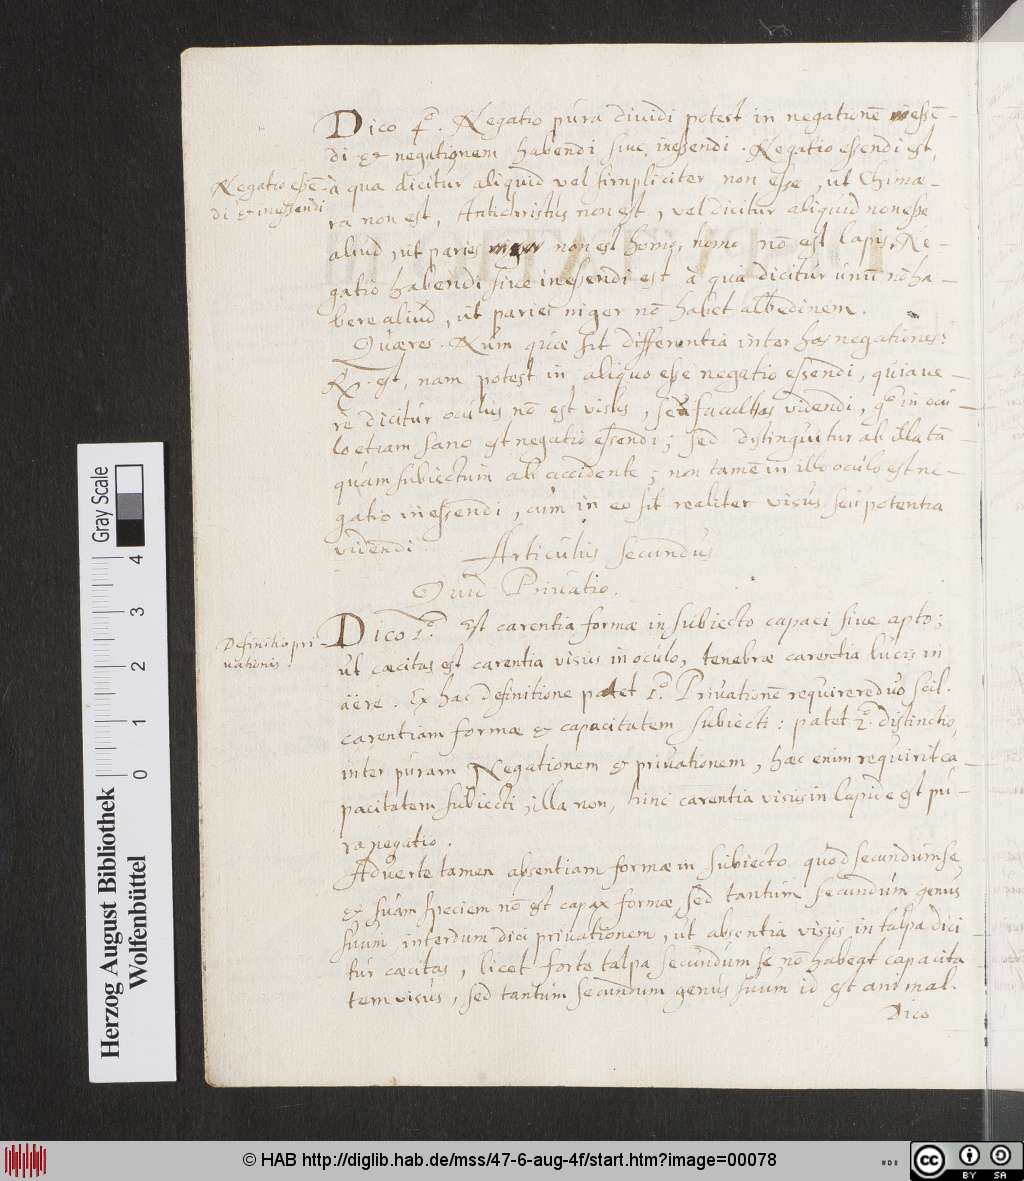 Dico 4º. Negatio pura dividi potest in negationē essē-
di et negationem habendi sive inessendi. Negatio essendi est,
Negatio essē-
di et inessendi
à qua dicitur aliquid vel simpliciter non esse, ut Chimæ-
ra non est, Antichristus non est, vel dicitur aliquid non esse
aliud, ut paries non est homo, homo nō est lapis. Ne-
gatio habendi sive inessendi est à qua dicitur unū nō ha-
bere aliud, ut paries niger nō habet albedinem.
Quæres. Num quæ sit differentia inter has negationes?
R. est, nam potest in aliquo esse negatio essendi, quia ve-
rè dicitur oculus nō est visus, seu facultas videndi, in ocu-
lo etiam sano est negatio essendi; sed distinguitur ab illa tā-
quam subiectum ab accidente; non tamē in illo oculo est ne-
gatio inessendi, cum in eo sit realiter visus seu potentia
videndi.
Articulus secundus
Quid Privatio.
Definitio pri-
vationis.
Dico 1º. Est carentia formæ in subiecto capaci sive apto;
ut cæcitas est carentia visus in oculo, tenebræ carentia lucis in
äere. Ex hac definitione patet 1º. Privationē requirere duo scil.
carentiam formæ et capacitatem subiecti: patet 2º. distinctio
inter puram Negationem et privationem, hæc enim requirit ca-
pacitatem subiecti, illa non, hinc carentia visus in lapide est pu-
ra negatio.
Adverte tamen absentiam formæ in subiecto quod secundum se
et suam speciem nō est capax formæ sed tantum secundum genus
suum interdum dici privationem, ut absentia visus in talpa dici
tur cæcitas, licet forte talpa secundum se nō habeat capacita
tem visus, sed tantum secundum genus suum id est animal.
Dico
Gray Scale
0 1 2 3 4
Herzog August Bibliothek
Wolfenbüttel
© HAB http://diglib.hab.de/mss/47-6-aug-4f/start.htm?image=00078
cc BY SA